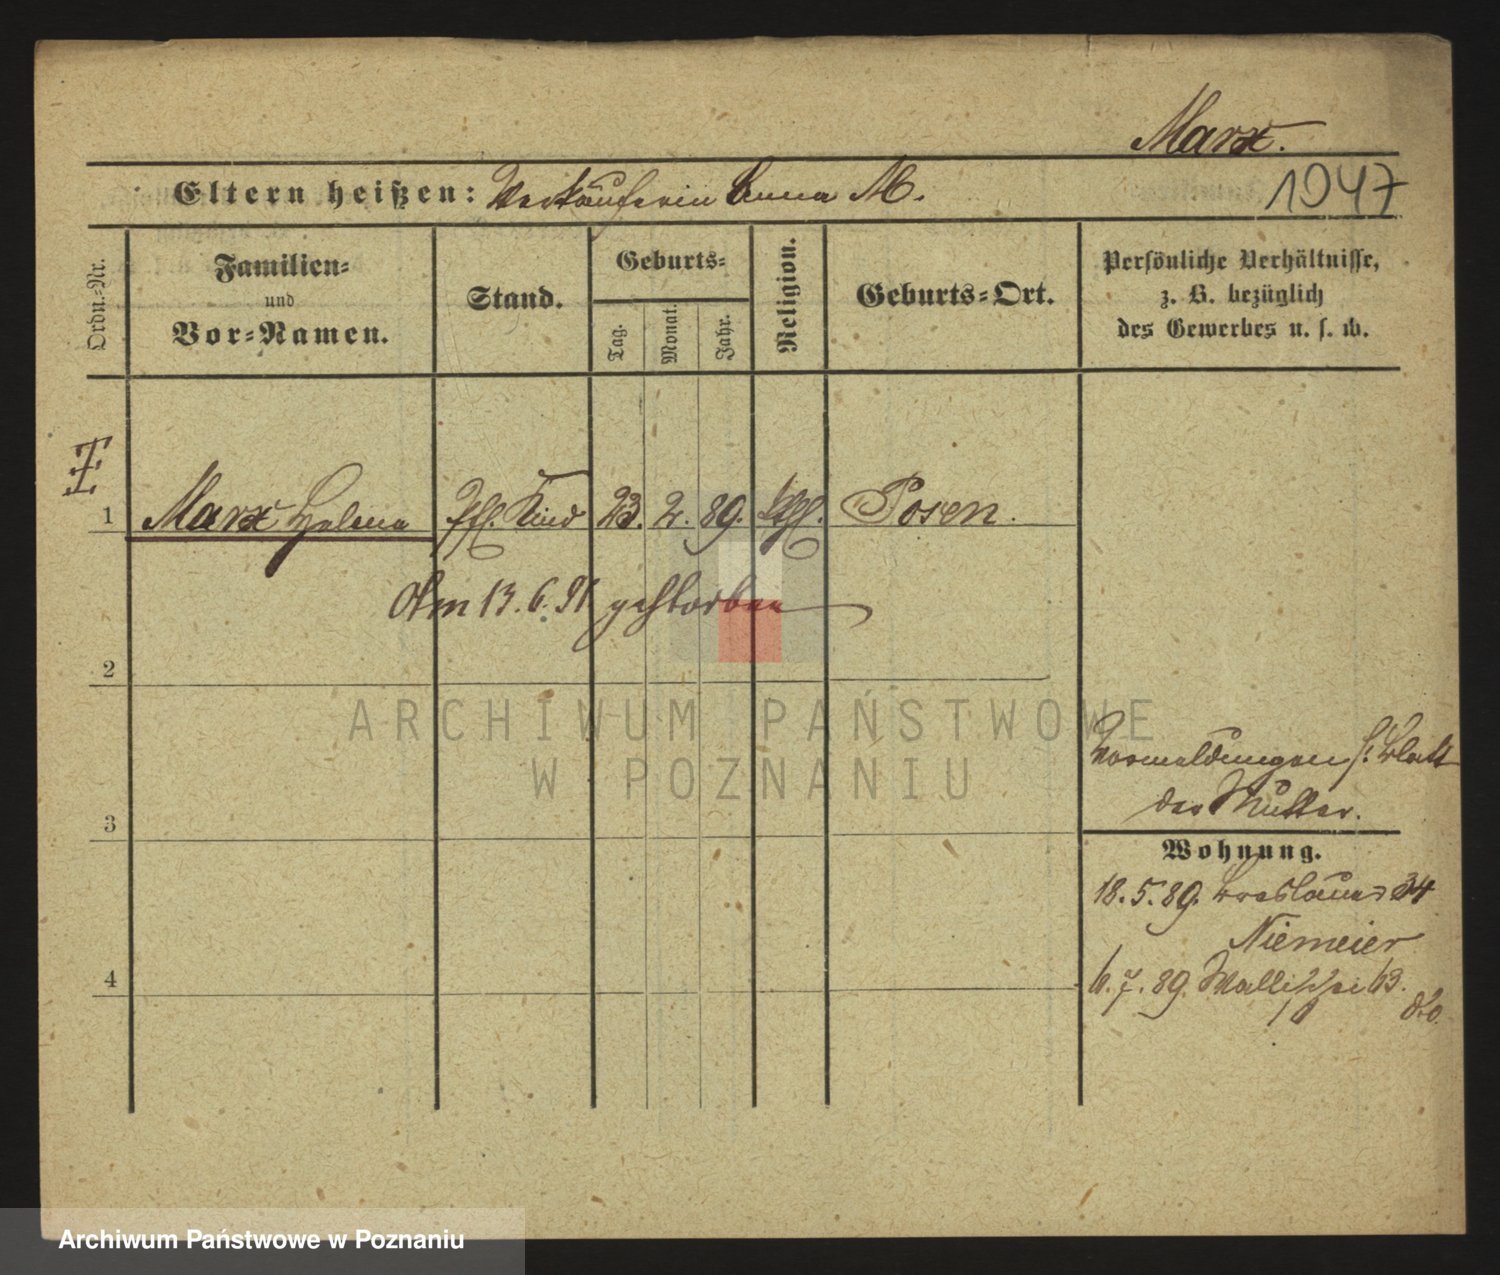 Marx.
1947
Eltern heißen: Verkäuferin Anna M.
Ordn.-Nr.
Familien-
und
Vor-Namen.
Stand.
Geburts-
Tag.
Monat.
Jahr.
Religion.
Geburts-Ort.
Persönliche Verhältnisse,
z. B. bezüglich
des Gewerbes u. s. w.
1 Marx Helena Pfl. Kind 23. 2. 89. kthl. Posen.
Am 13.6.91 gestorben
2
ARCHIWUM PAŃSTWOWE
W POZNANIU
Vormeldungen s. Blatt
der Mutter.
3
Wohnung.
18.5.89. Breslauer 34
Niemeier
4
6.7.89. Wallischei 63.
Archiwum Państwowe w Poznaniu